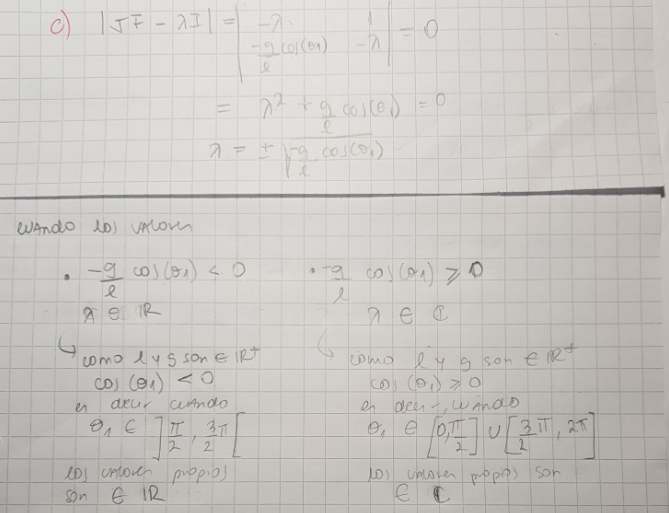 c) |JF - λI| = | -λ 1 | = 0
| -g/l cos(θ1) -λ |
= λ² + g/l cos(θ1) = 0
λ = ± √(-g/l cos(θ1))
cuando los valores
• -g/l cos(θ1) < 0
λ ∈ ℝ
↳ como l y g son ∈ ℝ⁺
cos(θ1) < 0
es decir cuando
θ1 ∈ ]π/2, 3/2 π[
los valores propios
son ∈ ℝ
• -g/l cos(θ1) ≥ 0
λ ∈ ℂ
↳ como l y g son ∈ ℝ⁺
cos(θ1) ≥ 0
es decir, cuando
θ1 ∈ [0, π/2] ∪ [3/2 π, 2π]
los valores propios son
∈ ℂ